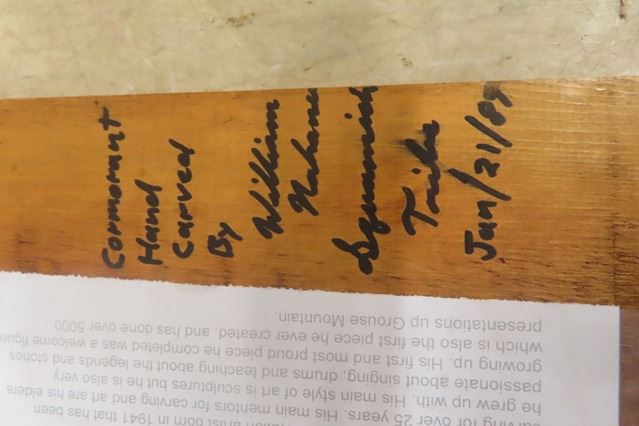 Cormorant
Hand
Carved
By
William
Nahanee
Squamish
Tribe
Jan/21/89
artist born in 1941 that has been
for over 25 years. His main mentors for carving and art are his elders
he grew up with. His main style of art is sculptures but he is also very
passionate about singing, drums and teaching about the legends and stories
growing up. His first and most proud piece he completed was a welcome figure
which is also the first piece he ever created, and has done over 5000
presentations up Grouse Mountain.